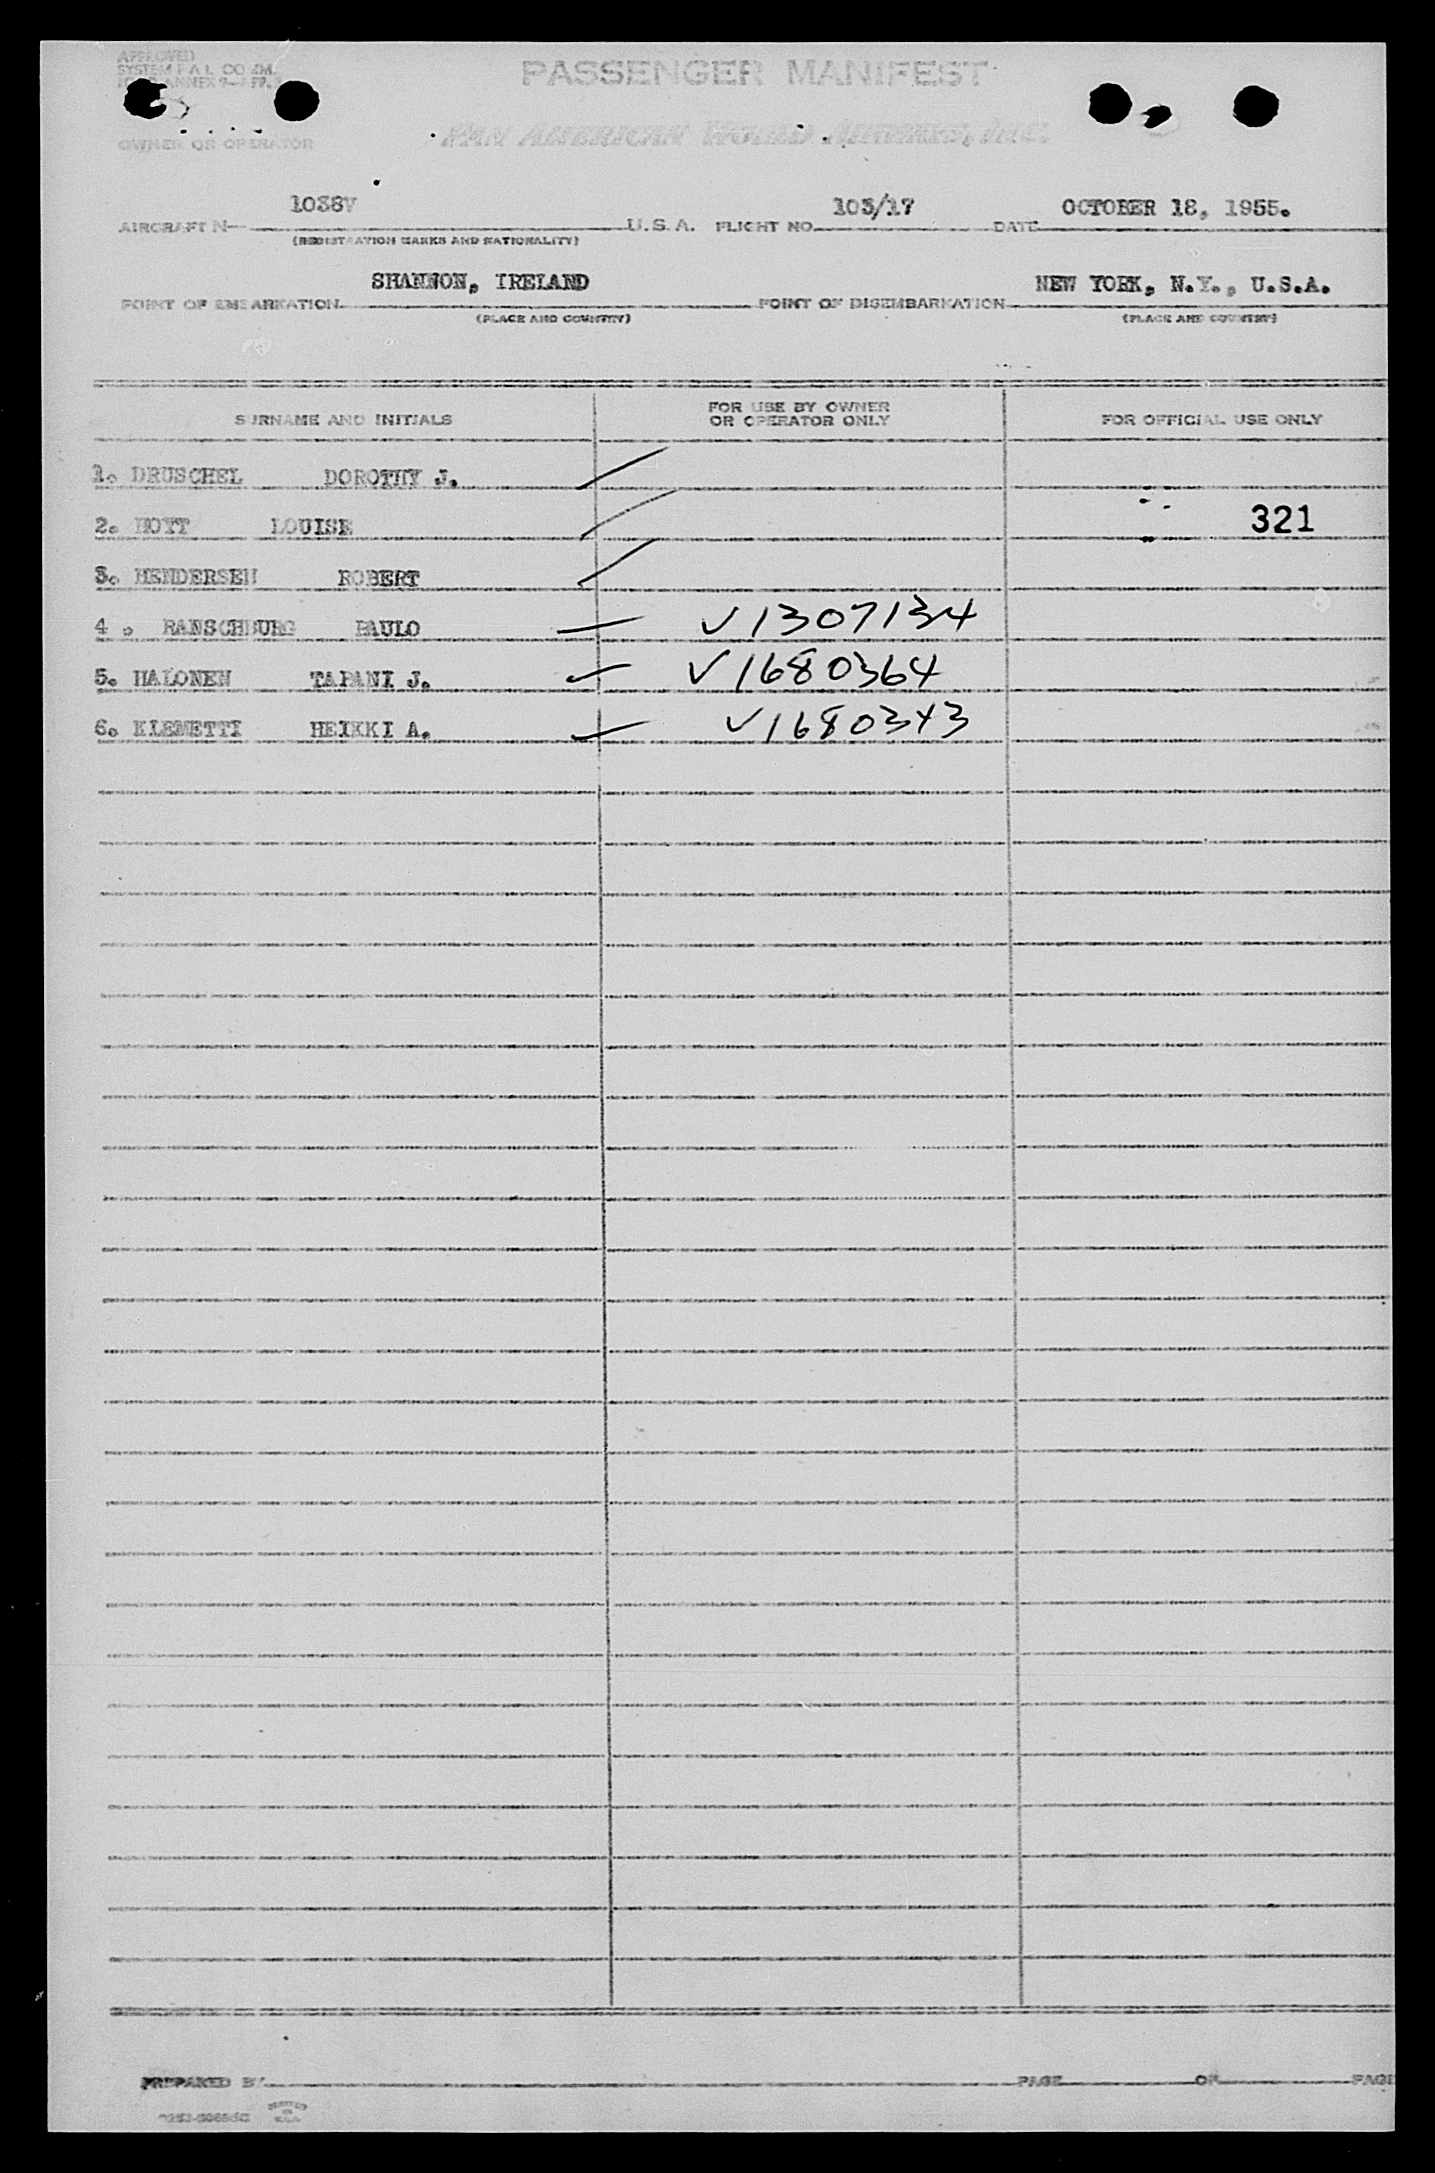 APPROVED
SYSTEM F A L COMM.
ANNEX 9
PASSENGER MANIFEST
OWNER OR OPERATOR
PAN AMERICAN WORLD AIRWAYS, INC.
AIRCRAFT N 1038V U.S.A. FLIGHT NO. 103/17 DATE OCTOBER 18, 1955.
(REGISTRATION MARKS AND NATIONALITY)
POINT OF EMBARKATION SHANNON, IRELAND POINT OF DISEMBARKATION NEW YORK, N.Y., U.S.A.
(PLACE AND COUNTRY) (PLACE AND COUNTRY)
SURNAME AND INITIALS FOR USE BY OWNER OR OPERATOR ONLY FOR OFFICIAL USE ONLY
1. DRUSCHEL DOROTHY J.
2. HOYT LOUISE 321
3. HENDERSEN ROBERT
4. RANSCHBURG PAULO V1307134
5. HALONEN TAPANI J. V1680364
6. KLEMETTI HEIKKI A. V1680343
PREPARED BY PAGE OF PAGE